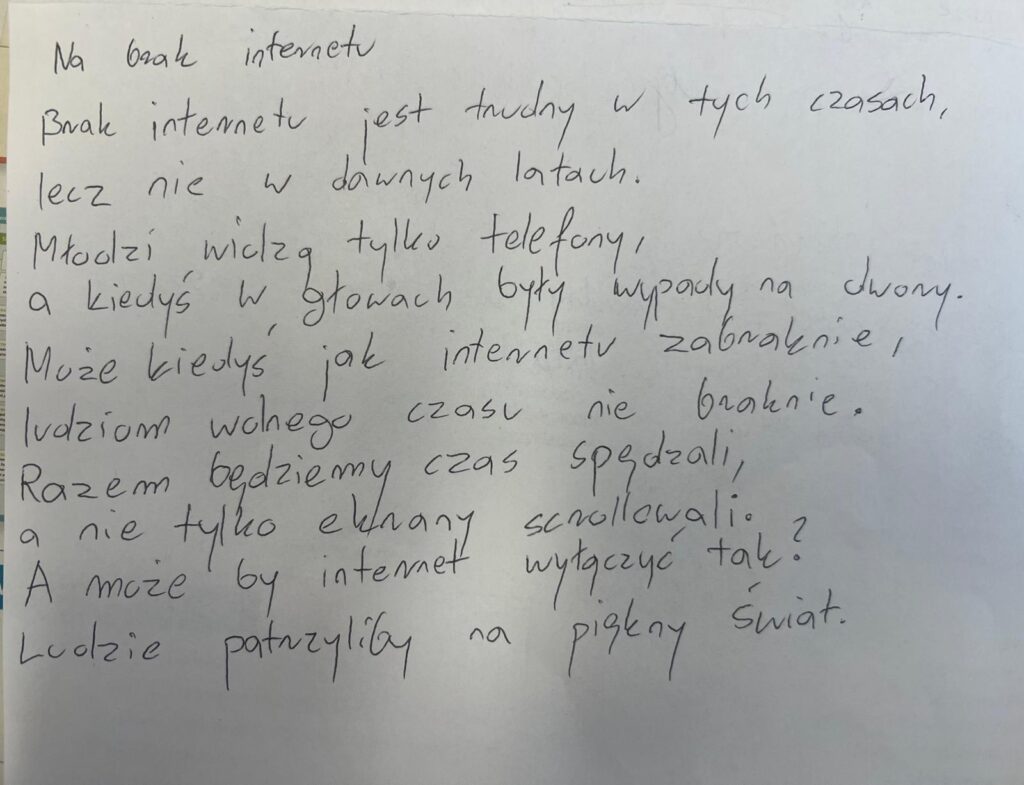 Na brak internetu
Brak internetu jest trudny w tych czasach,
lecz nie w dawnych latach.
Młodzi widzą tylko telefony,
a kiedyś w głowach były wypady na dwory.
Może kiedyś jak internetu zabraknie,
ludziom wolnego czasu nie braknie.
Razem będziemy czas spędzali,
a nie tylko ekrany scrollowali.
A może by internet wyłączyć tak?
Ludzie patrzyliby na piękny świat.